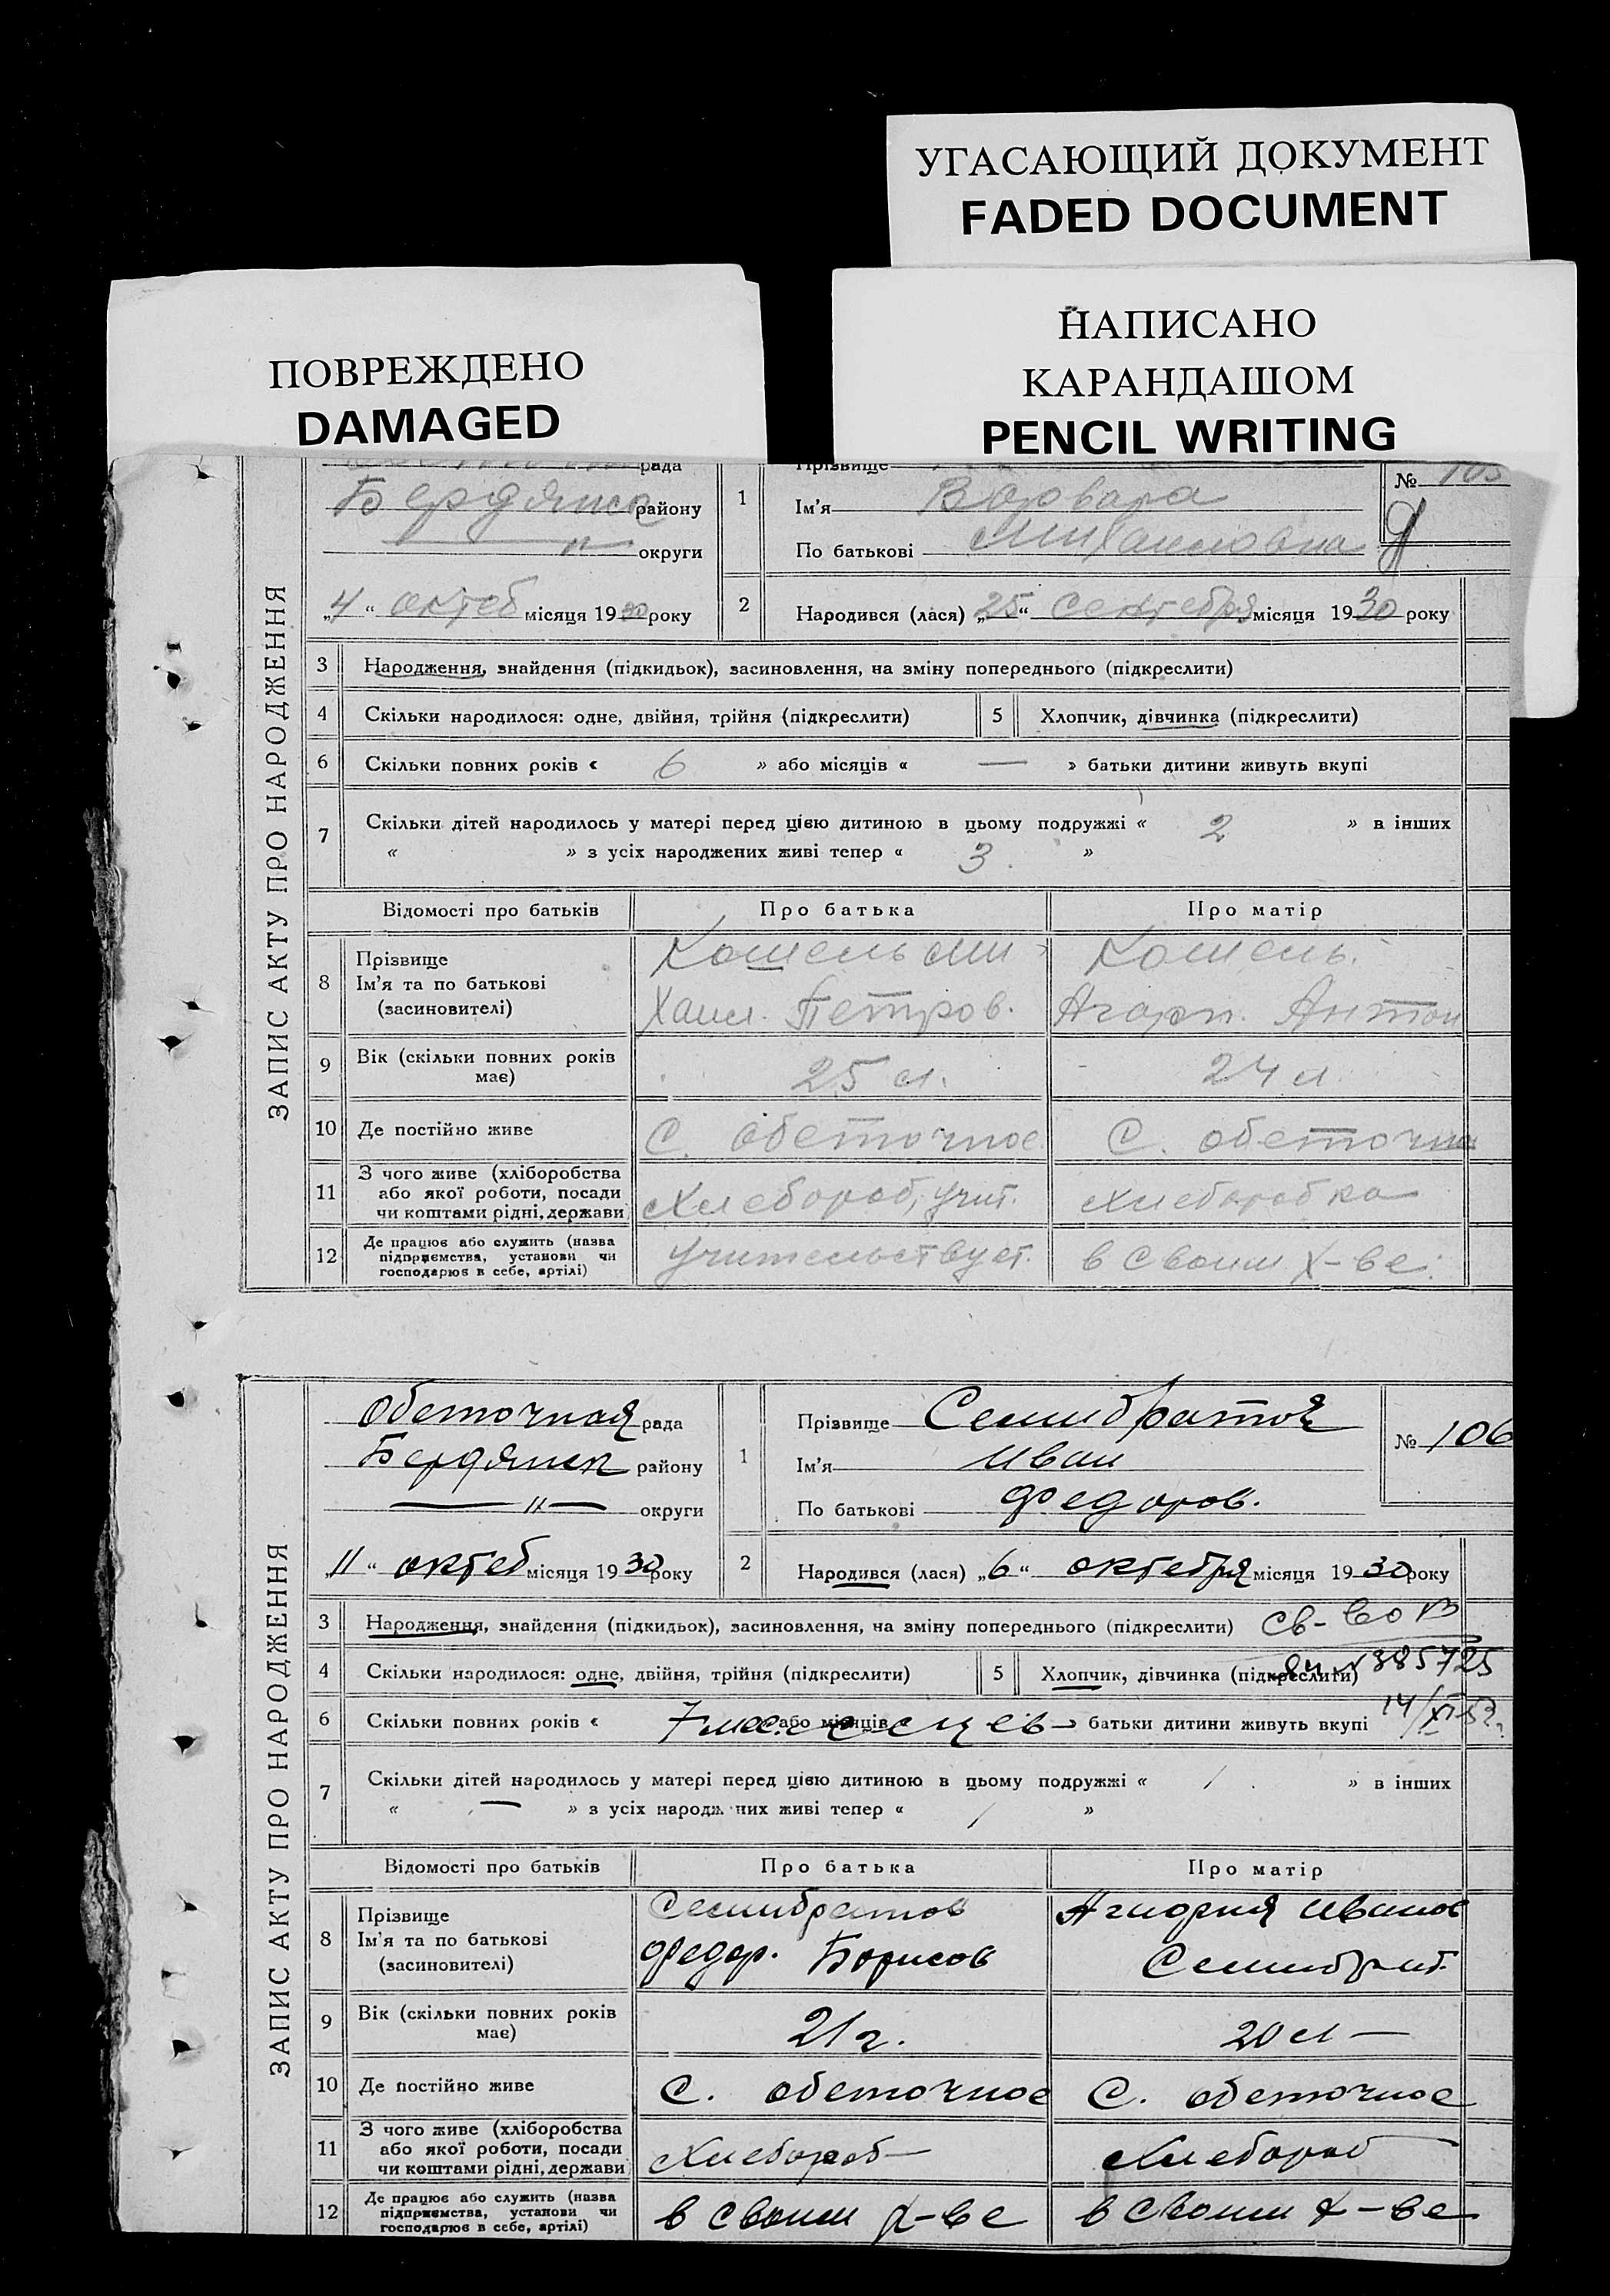 УГАСАЮЩИЙ ДОКУМЕНТ
FADED DOCUMENT
ПОВРЕЖДЕНО
DAMAGED
НАПИСАНО
КАРАНДАШОМ
PENCIL WRITING
ЗАПИС АКТУ ПРО НАРОДЖЕННЯ
рада
Бердянск району
—〃— округи
„4“ октеб місяця 1930 року
1 Прізвище
Ім'я Варвара
По батькові Михайловна
№ 105
2 Народився (лася) „25“ Сентебря місяця 1930 року
3 Народження, знайдення (підкидьок), засиновлення, на зміну попереднього (підкреслити)
4 Скільки народилося: одне, двійня, трійня (підкреслити) 5 Хлопчик, дівчинка (підкреслити)
6 Скільки повних років « 6 » або місяців « — » батьки дитини живуть вкупі
7 Скільки дітей народилось у матері перед цією дитиною в цьому подружжі « 2 » в інших
« » з усіх народжених живі тепер « 3 »
Відомості про батьків Про батька Про матір
8 Прізвище
Ім'я та по батькові
(засиновителі)
Кошель Ми-
хаил. Петров.
Кошель.
Агарп. Антон
9 Вік (скільки повних років
має)
25 л. 24 л
10 Де постійно живе С. Обеточное С. Обеточна
11 З чого живе (хліборобства
або якої роботи, посади
чи коштами рідні, держави
Хлебороб, учит. хлеборобка
12 Де працює або служить (назва
підприємства, установи чи
господарює в себе, артілі)
Учительствует. в своим х-ве.
ЗАПИС АКТУ ПРО НАРОДЖЕННЯ
Обеточная рада
Бердянск району
—〃— округи
„11“ октеб місяця 1930 року
1 Прізвище Семибратов
Ім'я Иван
По батькові Федоров.
№ 106
2 Народився (лася) „6“ октебря місяця 1930 року
3 Народження, знайдення (підкидьок), засиновлення, на зміну попереднього (підкреслити) Св-во
4 Скільки народилося: одне, двійня, трійня (підкреслити) 5 Хлопчик, дівчинка (підкреслити) 385725
6 Скільки повних років « 7 месесцев або місяців батьки дитини живуть вкупі 14/XI-53г.
7 Скільки дітей народилось у матері перед цією дитиною в цьому подружжі « / » в інших
« — » з усіх народжених живі тепер « / »
Відомості про батьків Про батька Про матір
8 Прізвище
Ім'я та по батькові
(засиновителі)
Семибратов
Федор. Борисов
Иванов
Семибрат.
9 Вік (скільки повних років
має)
21 г. 20 л —
10 Де постійно живе С. Обеточное С. Обеточное
11 З чого живе (хліборобства
або якої роботи, посади
чи коштами рідні, держави
Хлебороб— Хлебороб
12 Де працює або служить (назва
підприємства, установи чи
господарює в себе, артілі)
в своим х-ве в своим х-ве